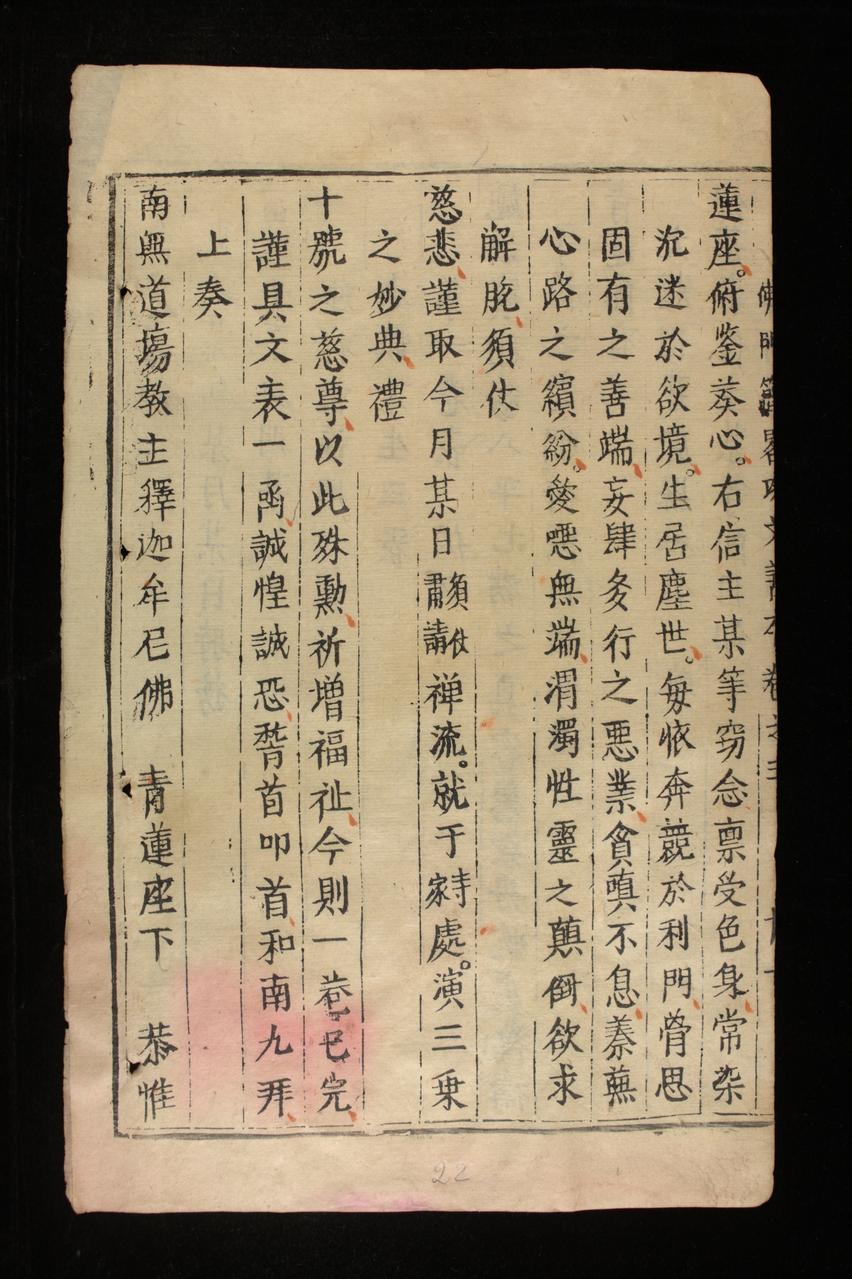 蓮座。俯鉴葵心。右信主某等窃念禀受色身常染
沉迷於欲境。生居塵世。每恢奔競於利門肯思
固有之善端妄肆多行之悪業貪嗔不息蓁蕪
心路之繽紛愛悪無端渭濁性靈之顛倒欲求
解脫須仗
慈悲謹取今月某日肅請須仗禅流。就于家寺處。演三乗
之妙典禮
十號之慈尊以此殊勲祈增福祉今則一卷已完
謹具文表一函誠惶誠恐稽首叩首和南九拜
上奏
南無道塲教主釋迦牟尼佛 青蓮座下 恭惟
22